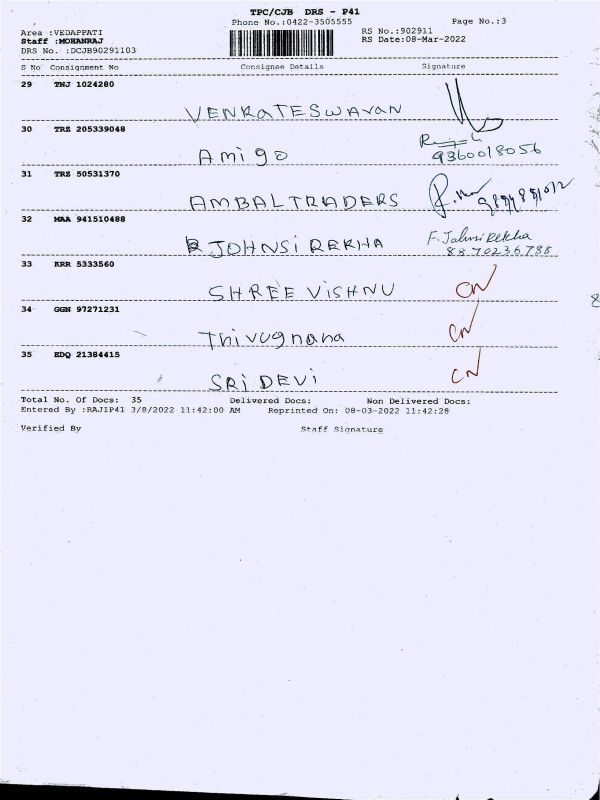 TPC/CJB DRS - P41
Phone No.:0422-3505555 Page No.:3
Area :VEDAPPATI RS No.:902911
Staff :MOHANRAJ RS Date:08-Mar-2022
DRS No. :DCJB90291103
S No Consignment No Consignee Details Signature
29 TNJ 1024280
VENKATESWAVAN
30 TRZ 205339048
Amigo 9360018056
31 TRZ 50531370
AMBAL TRADERS
32 MAA 941510488
JOHNSI REKHA F. Jahnsi Rekha
8870236788
33 KRR 5333560
SHREE ViSHNU CN
34 GGN 97271231
Thivugnana CN
35 EDQ 21384415
SRI DEVI CN
Total No. Of Docs: 35 Delivered Docs: Non Delivered Docs:
Entered By :RAJIP41 3/8/2022 11:42:00 AM Reprinted On: 08-03-2022 11:42:28
Verified By Staff Signature